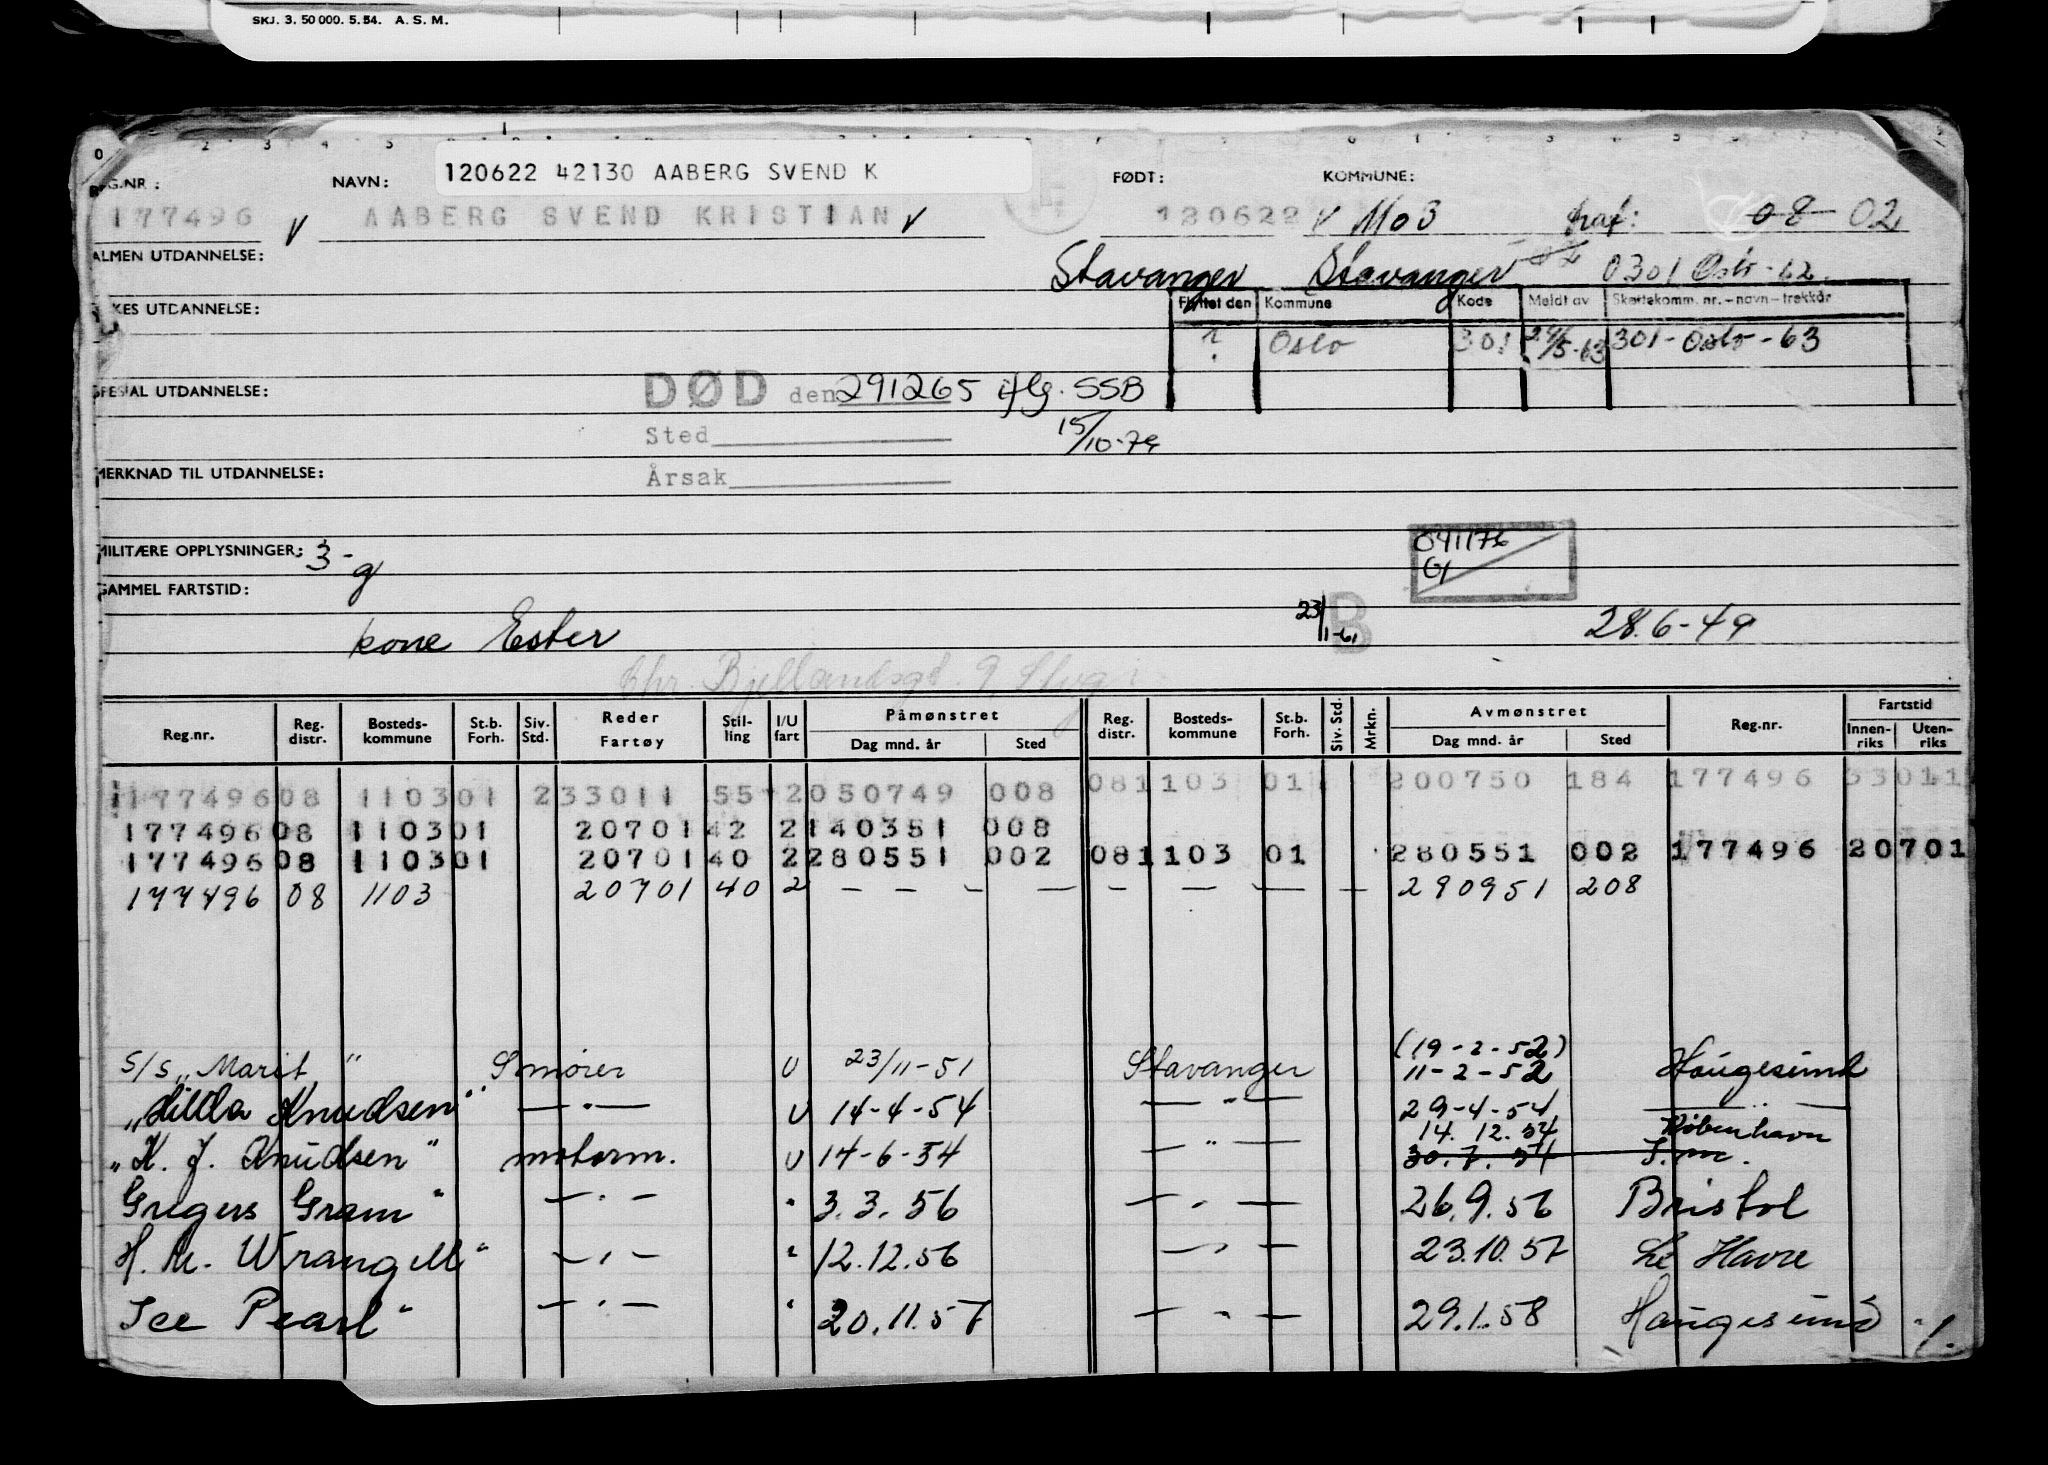 SKJ. 3. 50 000. 5. 54. A. S. M.
0 2 3 4 5
120622 42130 AABERG SVEND K
NAVN: FØDT: KOMMUNE:
177496 AABERG SVEND KRISTIAN 120622 Mo3 08 02
ALMEN UTDANNELSE:
Stavanger Stavanger 0301 Oslo - 62
Flyttet den Kommune Kode Meldt av Skattekomm. nr. – navn – trekkår
? Oslo 301 29/5-63 301 - Oslo - 63
SPESIAL UTDANNELSE:
DØD den 291265 iflg. SSB
Sted 15/10-74
MERKNAD TIL UTDANNELSE:
Årsak
041176
MILITÆRE OPPLYSNINGER: 3-g
GAMMEL FARTSTID:
kone Ester 23/1-61 B 28.6-49
Chr. Bjellandsgt. 9 Stvg
Reg.nr. Reg. distr. Bosteds-kommune St.b. Forh. Siv. Std. Reder Fartøy Stil-ling I/U fart Påmønstret Dag mnd. år Sted Reg. distr. Bosteds-kommune St.b. Forh. Siv. Std. Mrkn. Avmønstret Dag mnd. år Sted Reg.nr. Fartstid Innen-riks Uten-riks
177496 08 1103 01 2 33011 55 2 050749 008 08 1103 01 200750 184 177496 33011
177496 08 1103 01 20701 42 2 140351 008
177496 08 1103 01 20701 40 2 280551 002 08 1103 01 280551 002 177496 20701
177496 08 1103 20701 40 2 — — — — — — — — 290951 208
(19-2-52)
S/S „Marit" Smører U 23/11-51 Stavanger 11-2-52 Haugesund
„Hilda Knudsen" — " — U 14-4-54 — " — 29-4-54 — " —
14. 12. 54 København
„K. J. Knudsen" motorm. U 14-6-54 — " — 30. 7. 54
Gregers Gram" — " — " 3. 3. 56 — " — 26. 9. 56 Bristol
H. M. Wrangell" — " — " 12.12.56 — " — 23.10.57 Le Havre
Ice Pearl" — " — " 20.11.57 — " — 29.1.58 Haugesund ./.